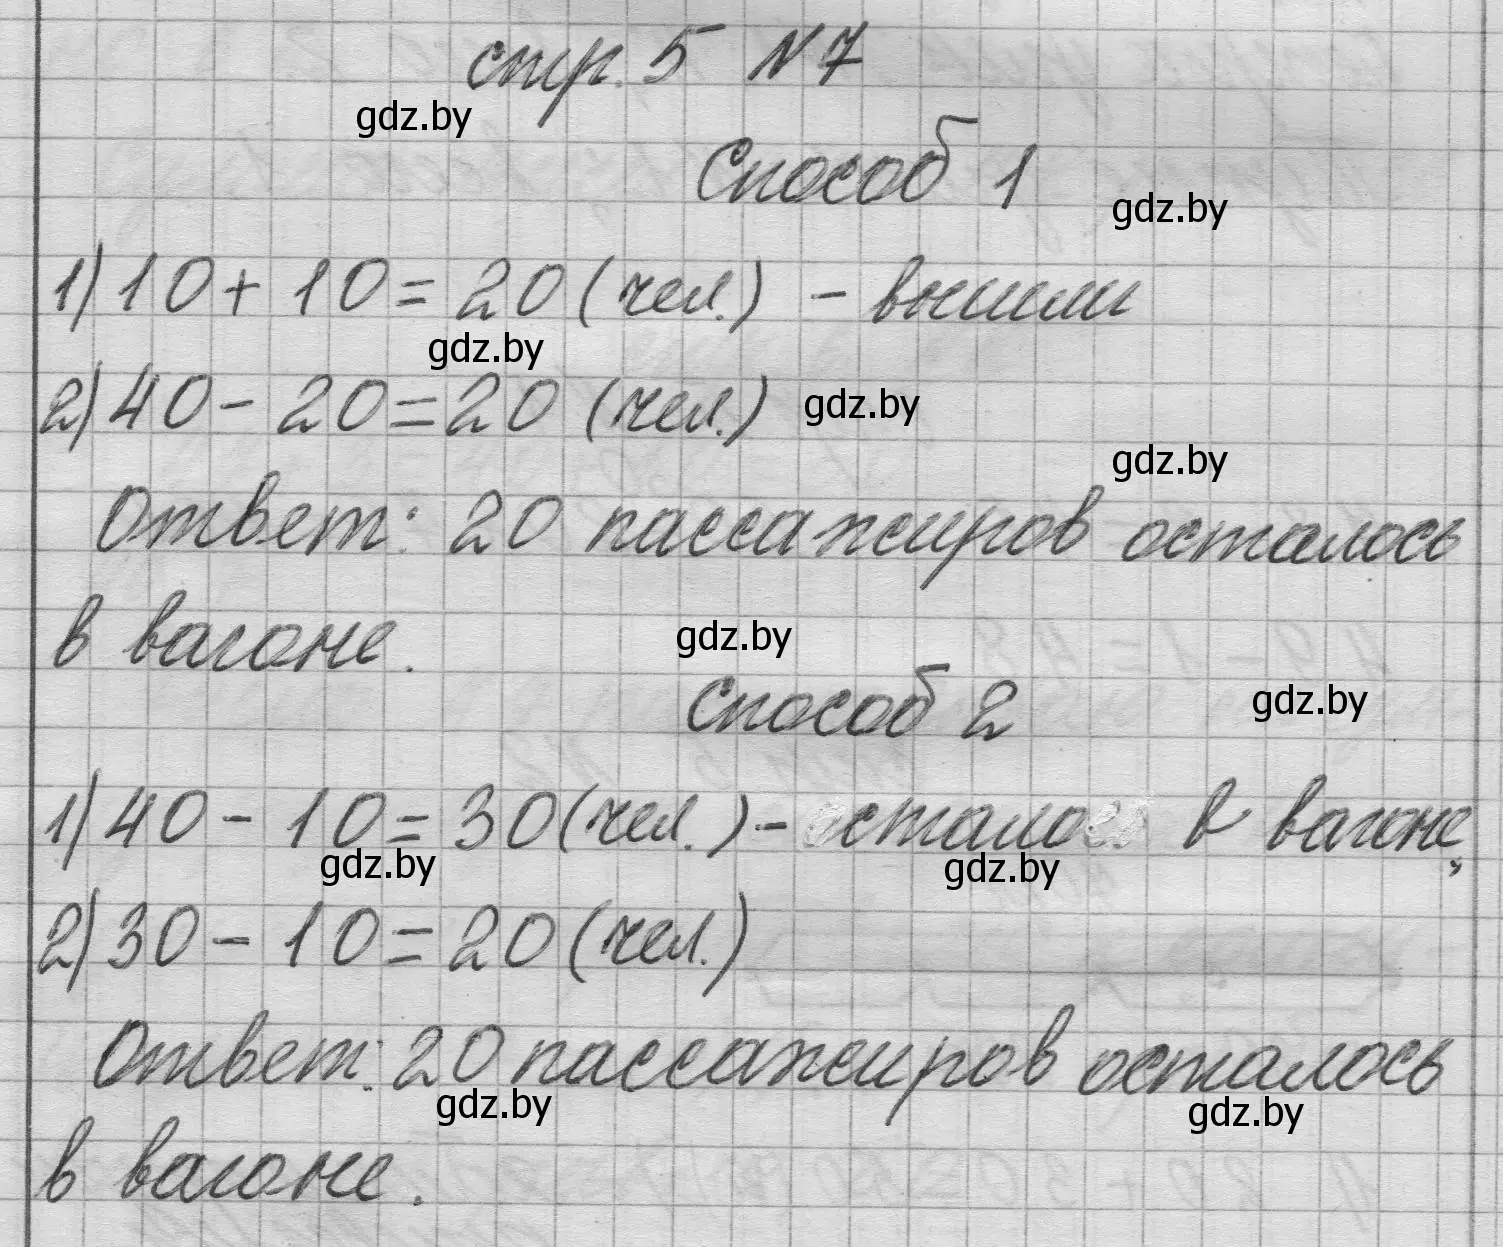 стр. 5 N 7
gdz.by
Способ 1
gdz.by
1) 10 + 10 = 20 (чел.) - вышли
gdz.by
2) 40 - 20 = 20 (чел.)
gdz.by
gdz.by
Ответ: 20 пассажиров осталось
в вагоне.
gdz.by
Способ 2
gdz.by
1) 40 - 10 = 30 (чел.) - осталось в вагоне,
gdz.by
gdz.by
2) 30 - 10 = 20 (чел.)
Ответ: 20 пассажиров осталось
gdz.by
gdz.by
в вагоне.